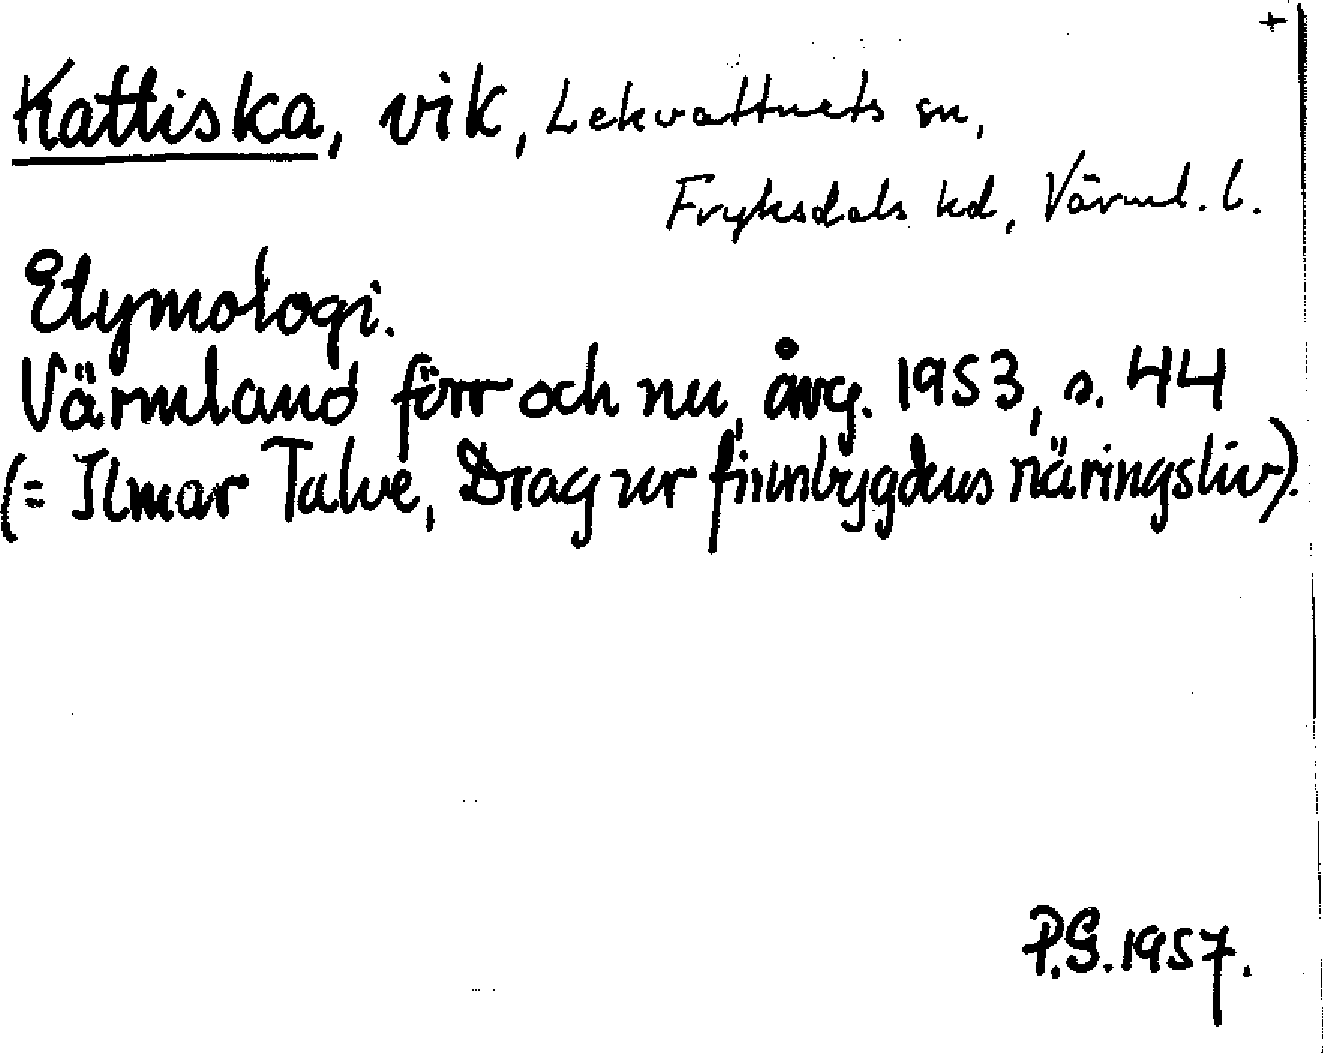 +
Kattiska, vik, Lekvattnets sn,
Fryksdals hd, Värml. l.
Etymologi.
Värmland förr och nu, årg. 1953, s. 44
(= Ilmar Talve, Drag ur finnbygdens näringsliv).
P.G. 1957.